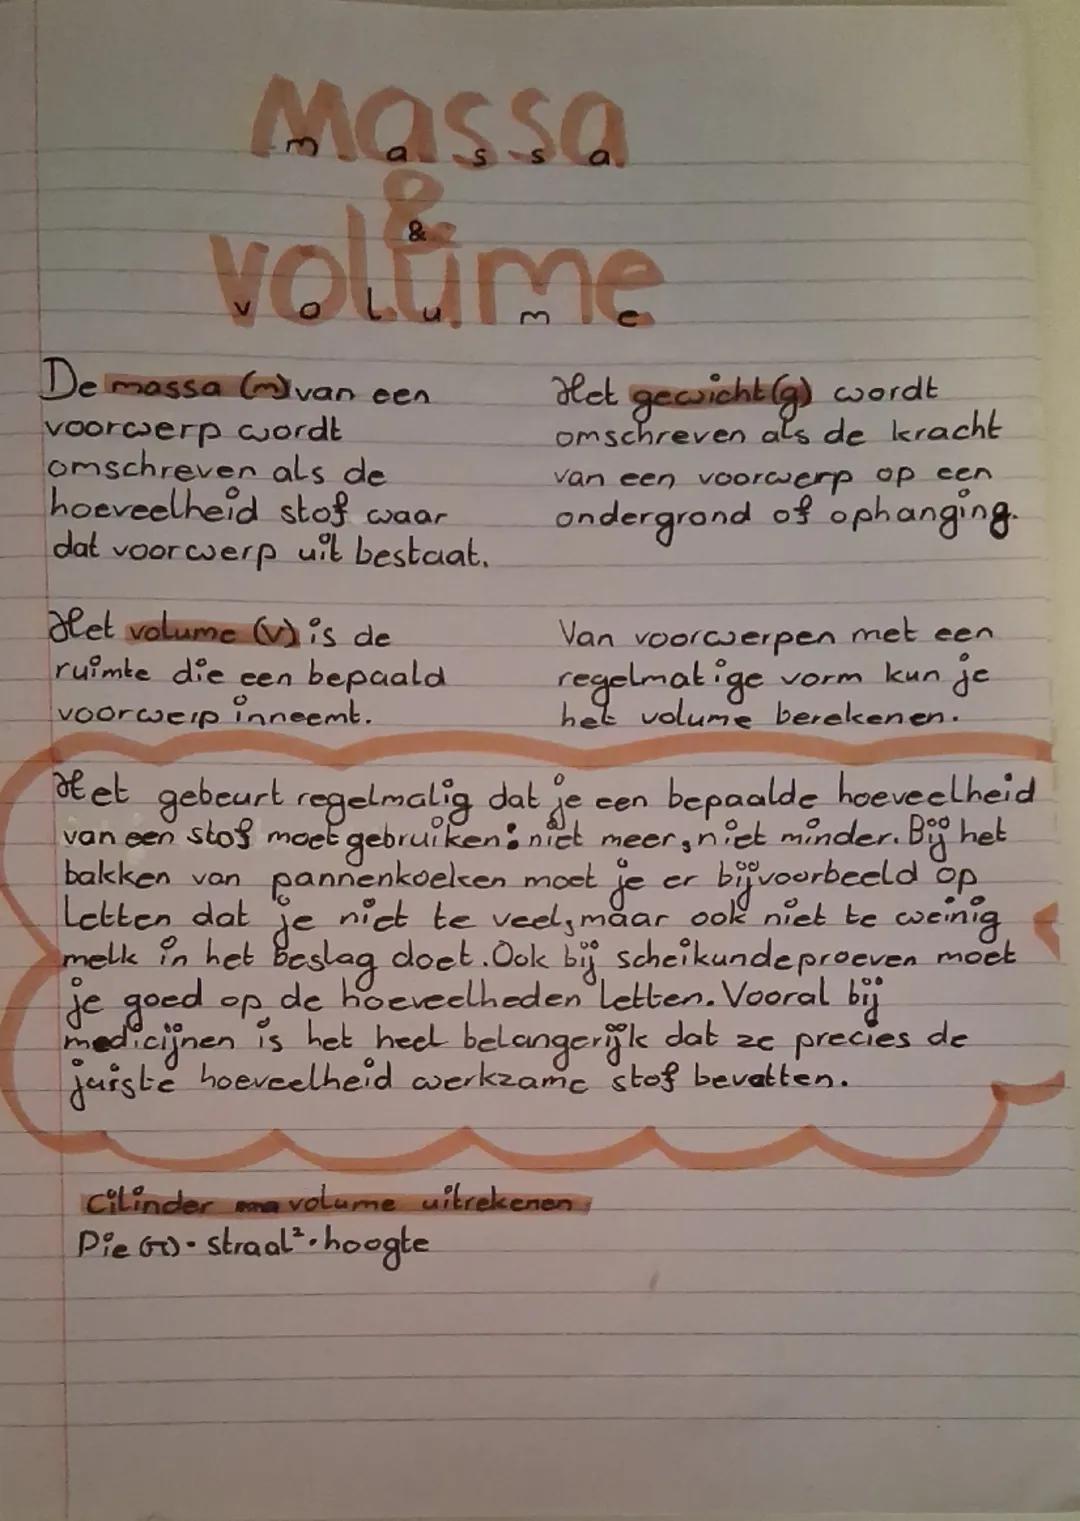 Massa
m a s s a
&
&
volume
v o l u m e
De massa (m) van een
voorwerp wordt
omschreven als de
hoeveelheid stof waar
dat voorwerp uit bestaat.
Het gewicht (g) wordt
omschreven als de kracht
van een voorwerp op een
ondergrond of ophanging.
Het volume (v) is de
ruimte die een bepaald
voorwerp inneemt.
Van voorwerpen met een
regelmatige vorm kun je
het volume berekenen.
Het gebeurt regelmatig dat je een bepaalde hoeveelheid
van een stof moet gebruiken: niet meer, niet minder. Bij het
bakken van pannenkoeken moet je er bijvoorbeeld op
letten dat je niet te veel, maar ook niet te weinig
melk in het beslag doet. Ook bij scheikundeproeven moet
je goed op de hoeveelheden letten. Vooral bij
medicijnen is het heel belangerijk dat ze precies de
juiste hoeveelheid werkzame stof bevatten.
Cilinder volume uitrekenen
Pie (π) · straal² · hoogte